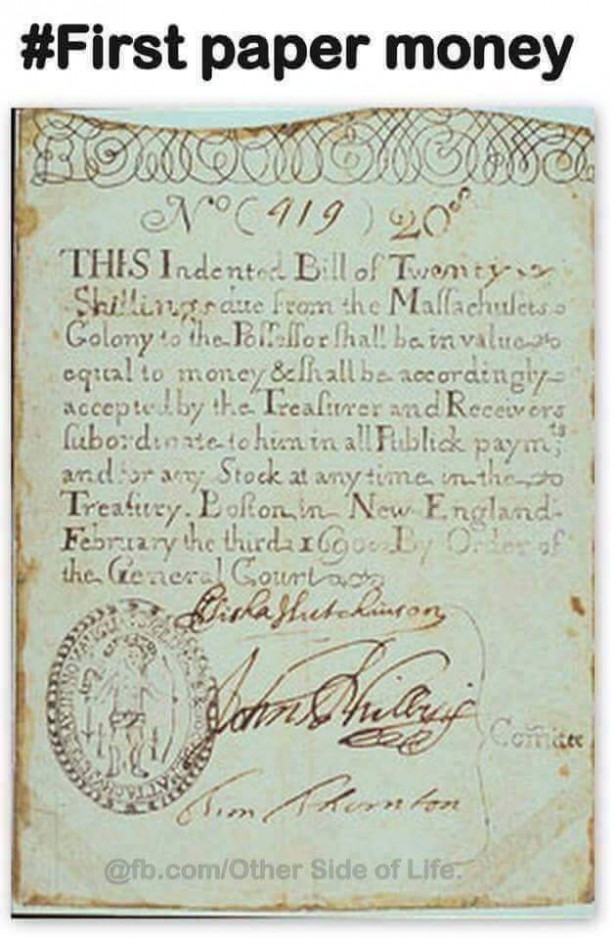 #First paper money
Nº (919) 20s
THIS Indented Bill of Twenty
Shillings due from the Maſſachuſets
Colony to the Poſſeſſor ſhall be in value
equal to money & ſhall be accordingly
accepted by the Treaſurer and Receivers
ſubordinate to him in all Publick paym:ts
and for any Stock at any time in the
Treaſury. Boſton in New England
February the third 1690 By Order of
the General Court
Elisha Hutchinson
John Phillips
Comittee
Tim Thornton
@fb.com/Other Side of Life.